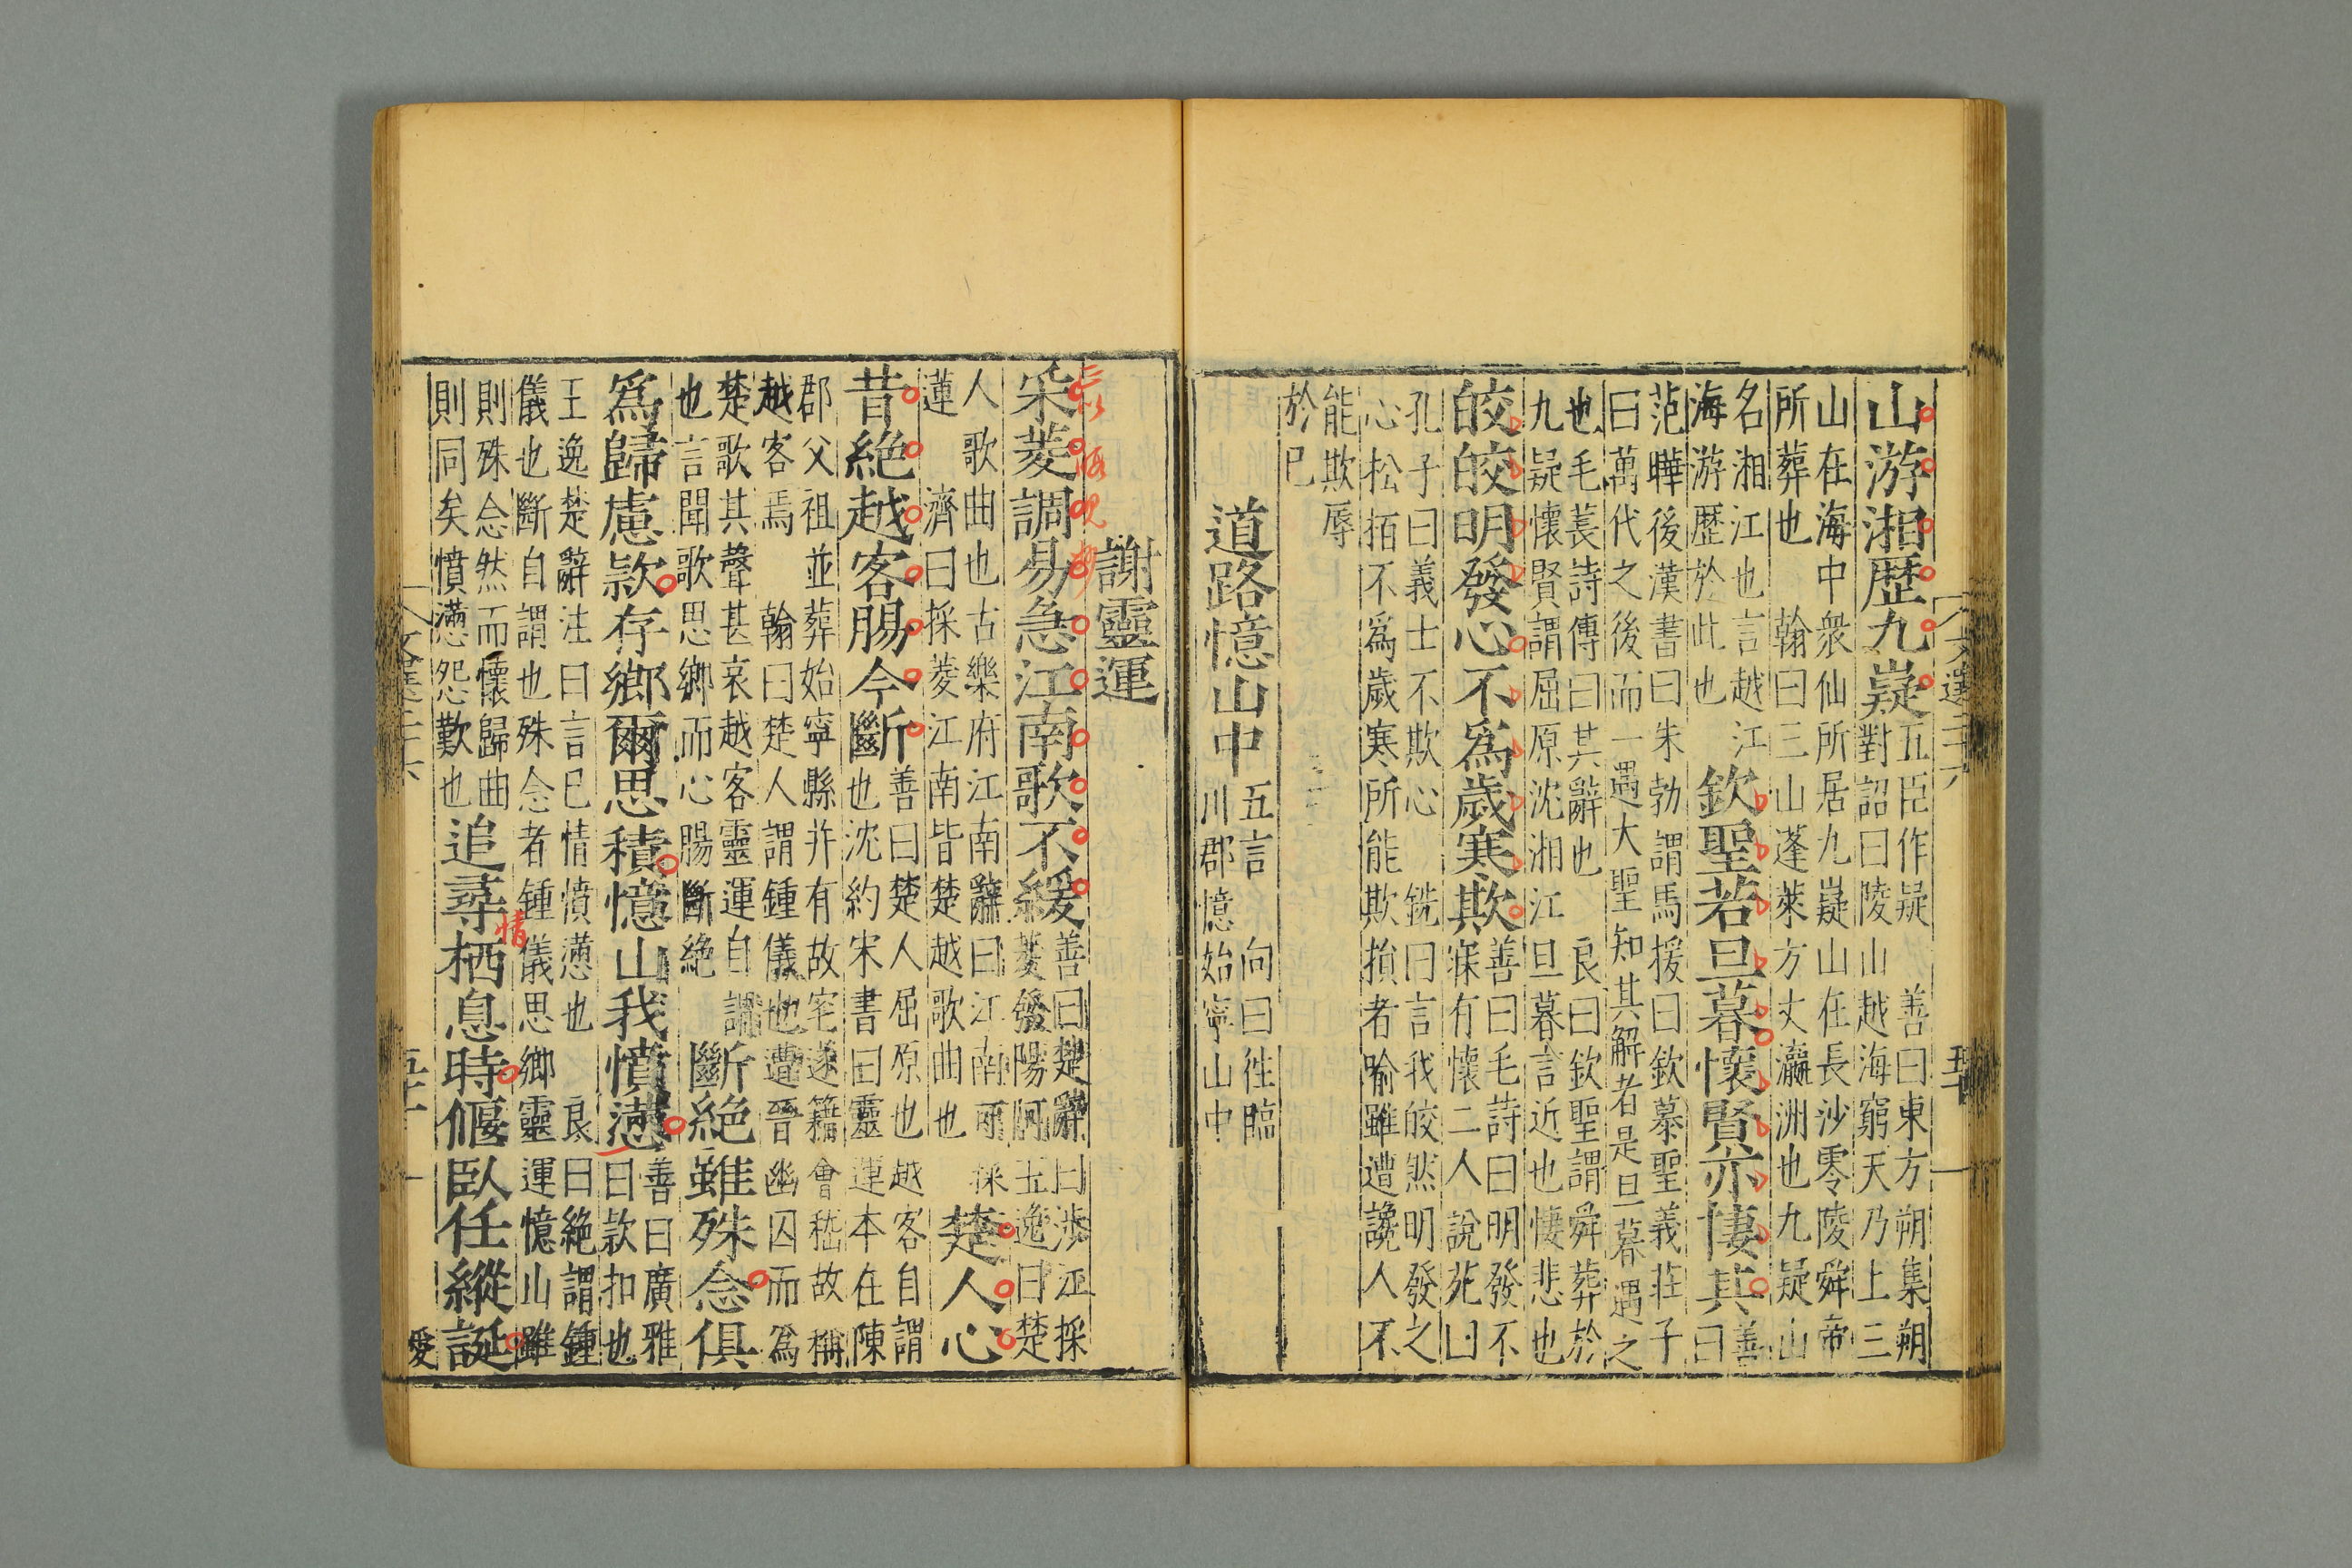 山游湘歷九嶷
五臣作疑 善曰東方朔集朔
對詔曰陵山越海窮天乃上三
山在海中衆仙所居九嶷山在長沙零陵舜帝
所葬也 翰曰三山蓬萊方丈瀛洲也九疑山
名湘江也言越江
海游歷於此也
欽聖若旦暮懷賢亦悽其
善
曰
范曄後漢書曰朱勃謂馬援曰欽慕聖義莊子
曰萬代之後而一遇大聖知其解者是旦暮遇之
也毛萇詩傳曰其辭也 良曰欽聖謂舜葬於
九疑懷賢謂屈原沈湘江旦暮言近也悽悲也
皎皎明發心不爲歲寒欺
善曰毛詩曰明發不
寐有懷二人說苑曰
孔子曰義士不欺心 銑曰言我皎然明發之
心松栢不爲歲寒所能欺損者喻雖遭讒人不
能欺辱
於己
道路憶山中
五言 向曰往臨
川郡憶始寧山中
謝靈運
采菱調易急江南歌不緩
善曰楚辭曰涉江採
菱發陽阿王逸曰楚
人歌曲也古樂府江南辭曰江南可採
蓮 濟曰採菱江南皆楚越歌曲也
楚人心
昔絶越客腸今斷
善曰楚人屈原也越客自謂
也沈約宋書曰靈運本在陳
郡父祖並葬始寧縣并有故宅遂籍會稽故稱
越客焉 翰曰楚人謂鍾儀也遭晉幽囚而爲
楚歌其聲甚哀越客靈運自謂
也言聞歌思鄉而心腸斷絶
斷絶雖殊念俱
爲歸慮款存鄉爾思積憶山我憤懣
善曰廣雅
曰款扣也
王逸楚辭注曰言己情憤懣也 良曰絶謂鍾
儀也斷自謂也殊念者鍾儀思鄉靈運憶山雖
則殊念然而懷歸曲
則同矣憤懣怨歎也
追尋栖息時偃臥任縱誕
情